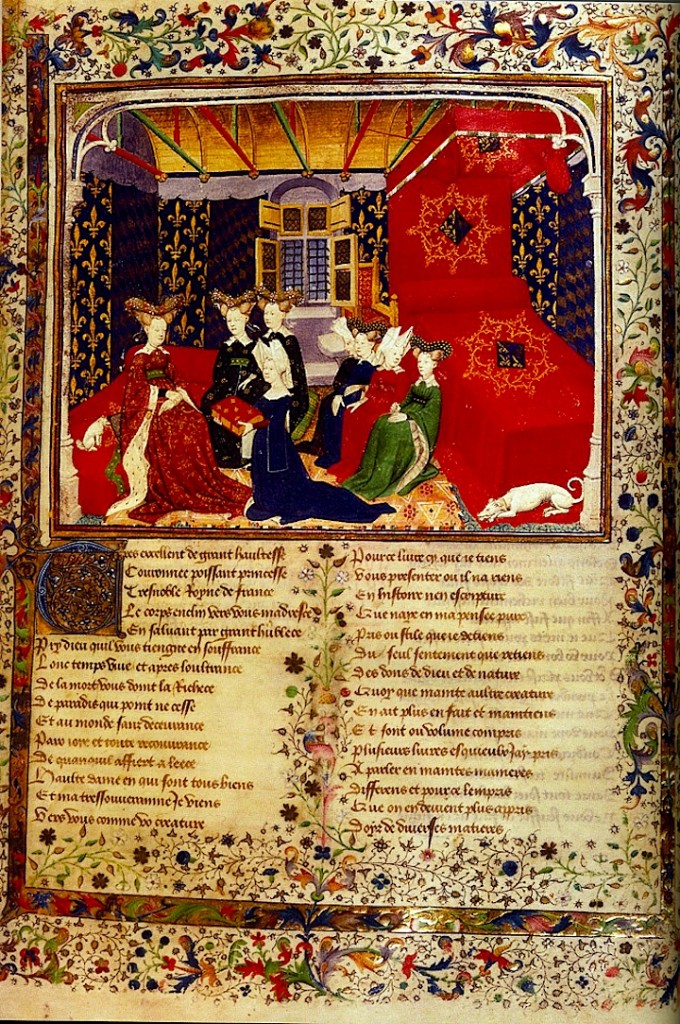 Tres excellent de grant haultesse
Couronnee poissant princesse
Tresnoble Royne de france
Le corps enclin vers vous madresce
En saluant par grant humblece
Pry dieu quil vous tiengne en souffrance
Lonc temps viue et apres loultrance
De la mort vous doint la richece
De paradis qui point ne cesse
Et au monde sans deceurance
Paix ioye et toute recouurance
De quanquil affiert a leece
Haulte dame en qui sont tous biens
Et ma tressouueraine Je viens
Vers vous comme vo creature
Pour ce liure cy que ie tiens
Vous presenter ou il na riens
En histoire nen escripture
Que naye en ma pensee pure
Pris ou stile que ie detiens
Du seul sentement que retiens
Des dons de dieu et de nature
Quoy que mainte aultre creature
En ait plus en fait et maintiens
Et sont ou volume compris
Plusieurs liures esquieulx Jay pris
A parler en maintes manieres
Differens et pour ce lempris
Que on en deuient plus appris
Doyr de diuerses matieres